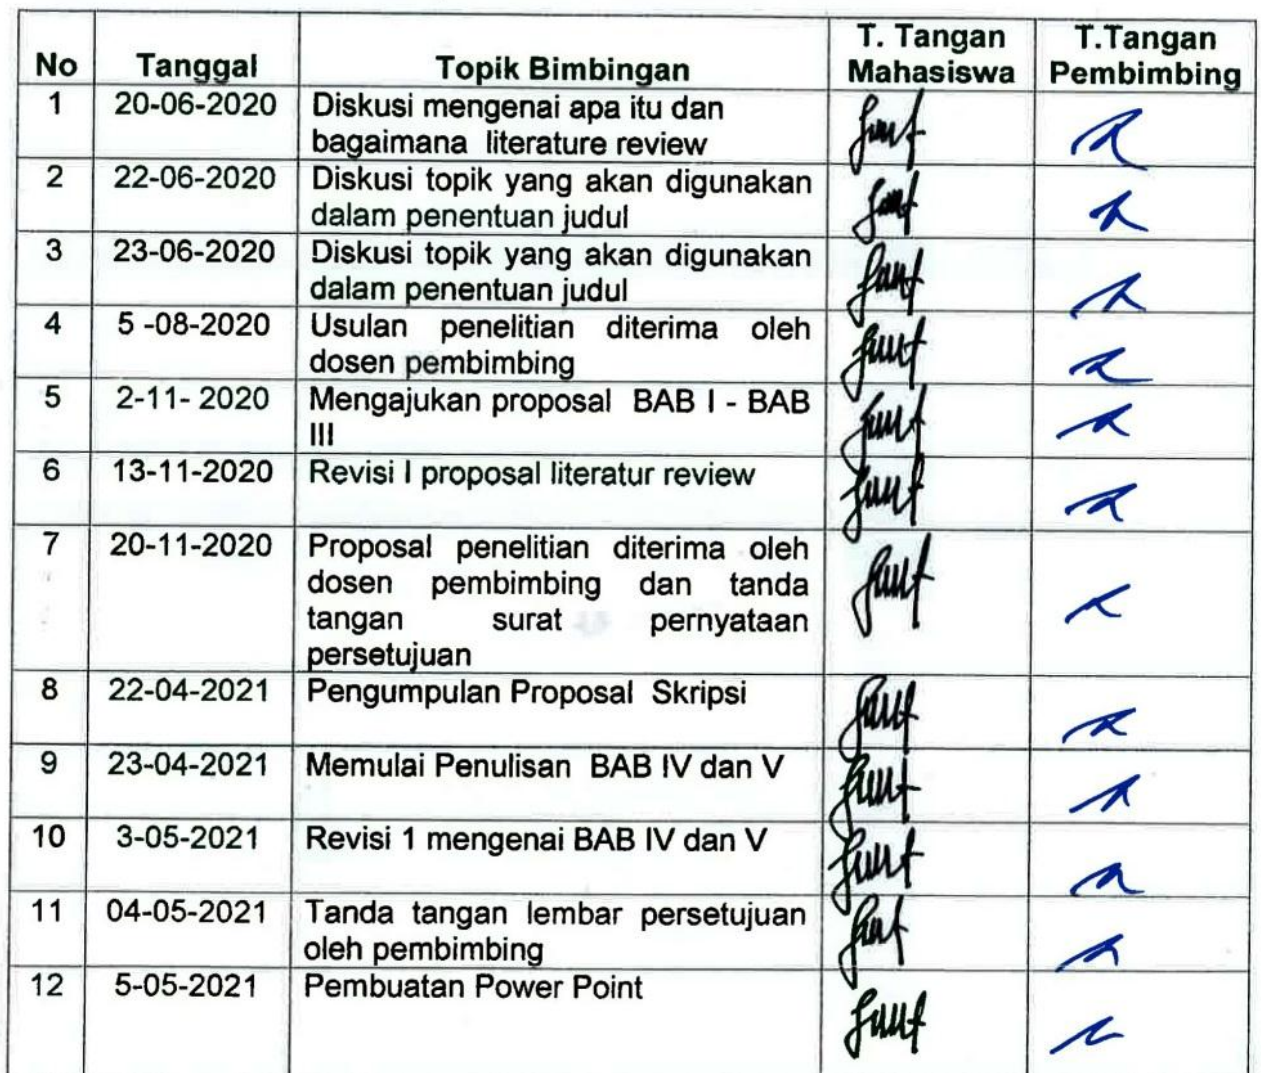 No Tanggal Topik Bimbingan T. Tangan Mahasiswa T.Tangan Pembimbing
1 20-06-2020 Diskusi mengenai apa itu dan
bagaimana literature review
2 22-06-2020 Diskusi topik yang akan digunakan
dalam penentuan judul
3 23-06-2020 Diskusi topik yang akan digunakan
dalam penentuan judul
4 5 -08-2020 Usulan penelitian diterima oleh
dosen pembimbing
5 2-11- 2020 Mengajukan proposal BAB I - BAB
III
6 13-11-2020 Revisi I proposal literatur review
7 20-11-2020 Proposal penelitian diterima oleh
dosen pembimbing dan tanda
tangan surat pernyataan
persetujuan
8 22-04-2021 Pengumpulan Proposal Skripsi
9 23-04-2021 Memulai Penulisan BAB IV dan V
10 3-05-2021 Revisi 1 mengenai BAB IV dan V
11 04-05-2021 Tanda tangan lembar persetujuan
oleh pembimbing
12 5-05-2021 Pembuatan Power Point